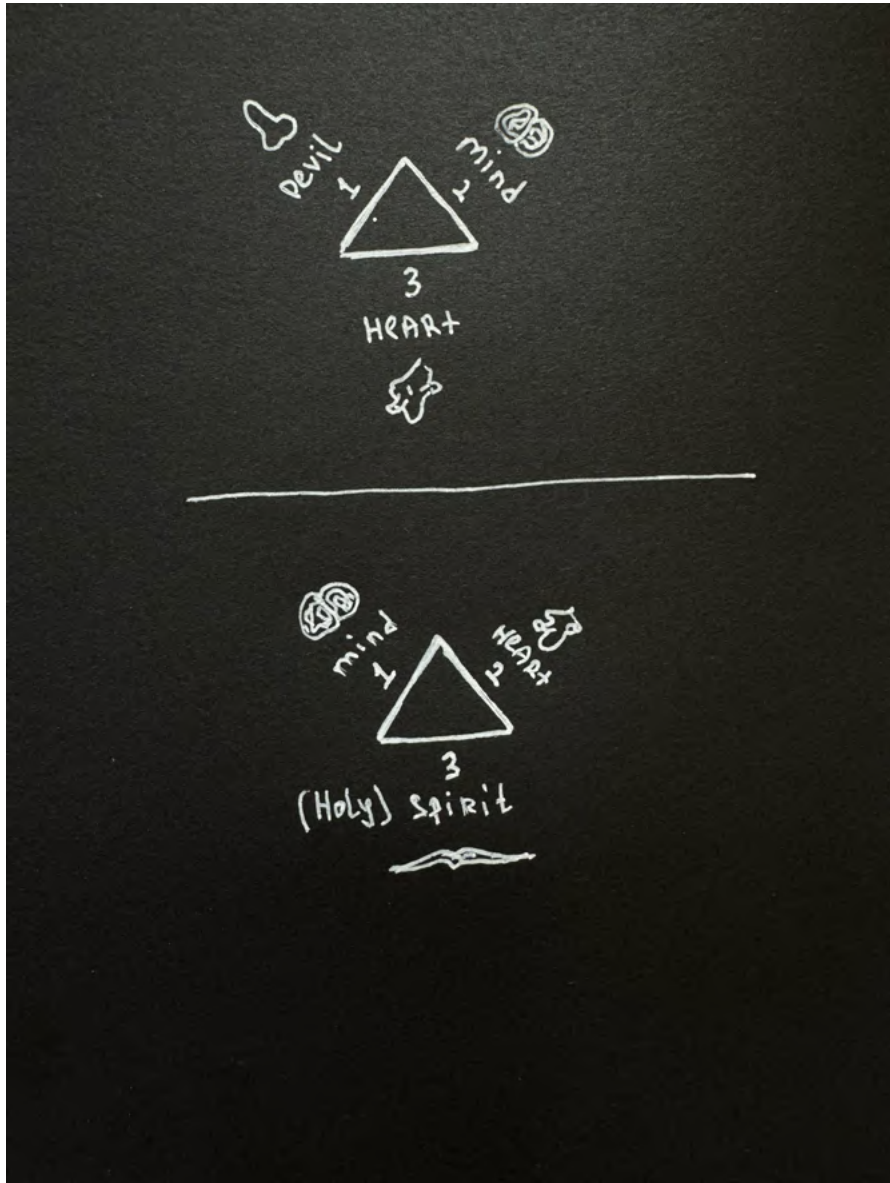 Devil
1
Mind
2
3
HeARt
mind
1
HeARt
2
3
(Holy) SpiRit